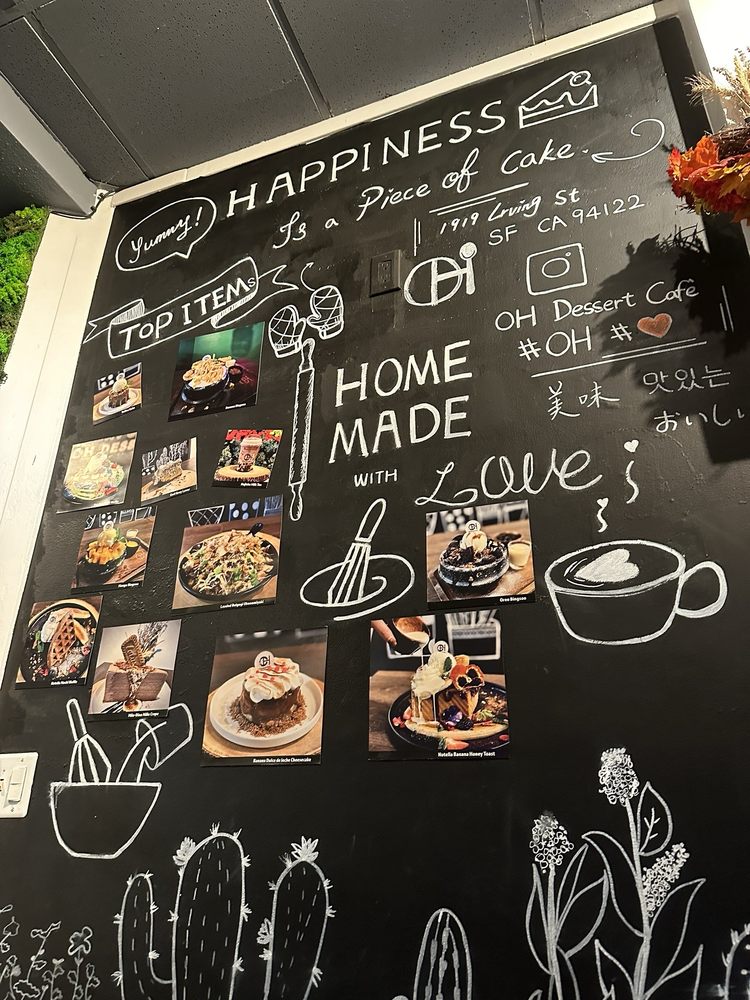 HAPPINESS
Yummy!
Is a Piece of Cake.
1919 Irving St
SF CA 94122
TOP ITEMS
OH
OH Dessert Café
#OH #
HOME
MADE
WITH LOVE
美味 맛있는
おいし
Mango Bingsoo
Loaded Bulgogi Okonomiyaki
Oreo Bingsoo
Mille Crepe
Banana Dulce de leche Cheesecake
Nutella Banana Honey Toast